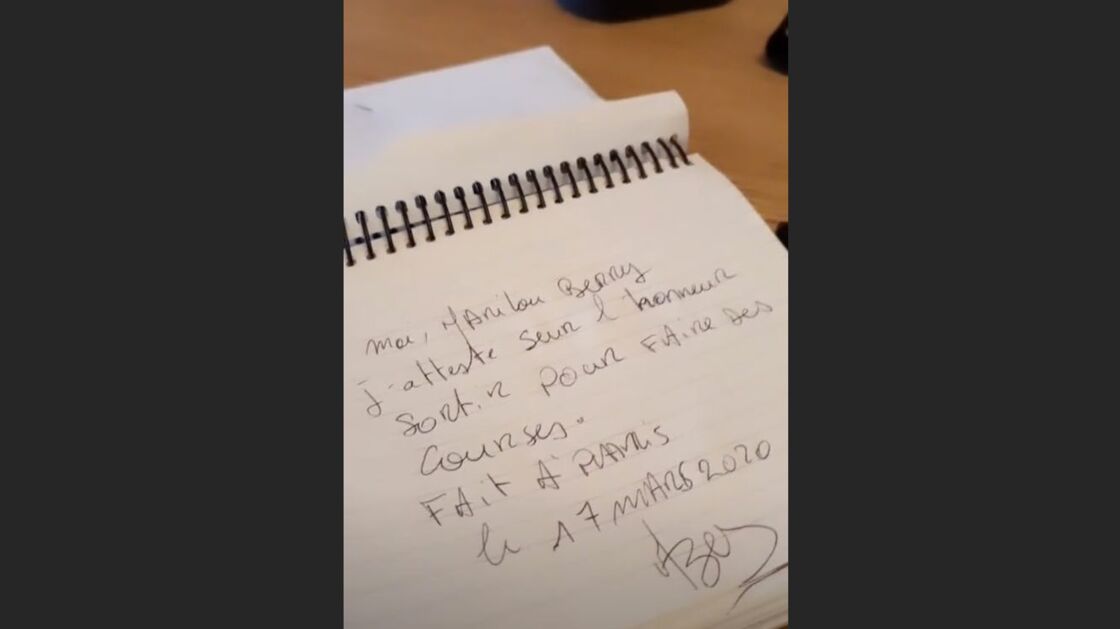 moi, MARilou BERRy
j'atteste sur l'honneur
sortir pour FAire des
courses.
FAit A PARis
le 17 MARS 2020